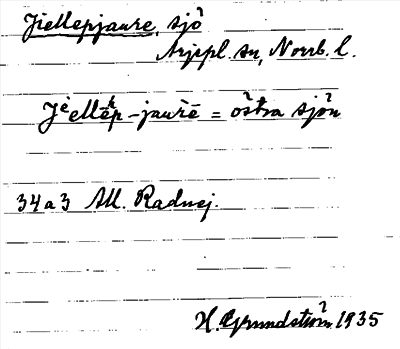 Jiellepjaure, sjö
Arjepl. sn, Norrb. l.
Jiellēhp-jaurē = östra sjön
34 a 3 All. Radnej.
H. Grundström 1935